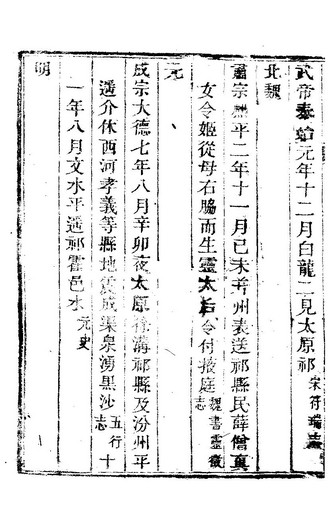 武帝泰始元年十二月白龍二見太原祁 宋符瑞志
北魏
肅宗熙平二年十一月己未并州表送祁縣民薛僧真
女令姬從母右脇而生靈太后令付掖庭 魏書靈徵志
元
成宗大德七年八月辛卯夜太原徐溝祁縣及汾州平
遥介休西河孝義等縣地震成渠泉湧黑沙 五行志 十
一年八月文水平遥祁霍邑水 元史
明